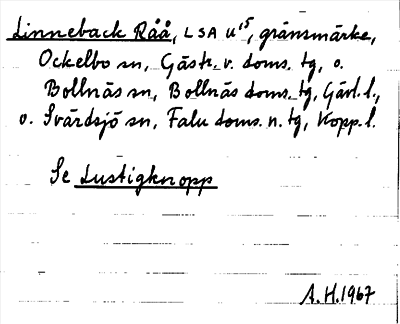 Linneback Råå, LSA U¹⁵, gränsmärke,
Ockelbo sn, Gästr. v. doms. tg, o.
Bollnäs sn, Bollnäs doms. tg, Gävl. l.,
o. Svärdsjö sn, Falu doms. n. tg, Kopp. l.
Se Lustigknopp
A.H.1967